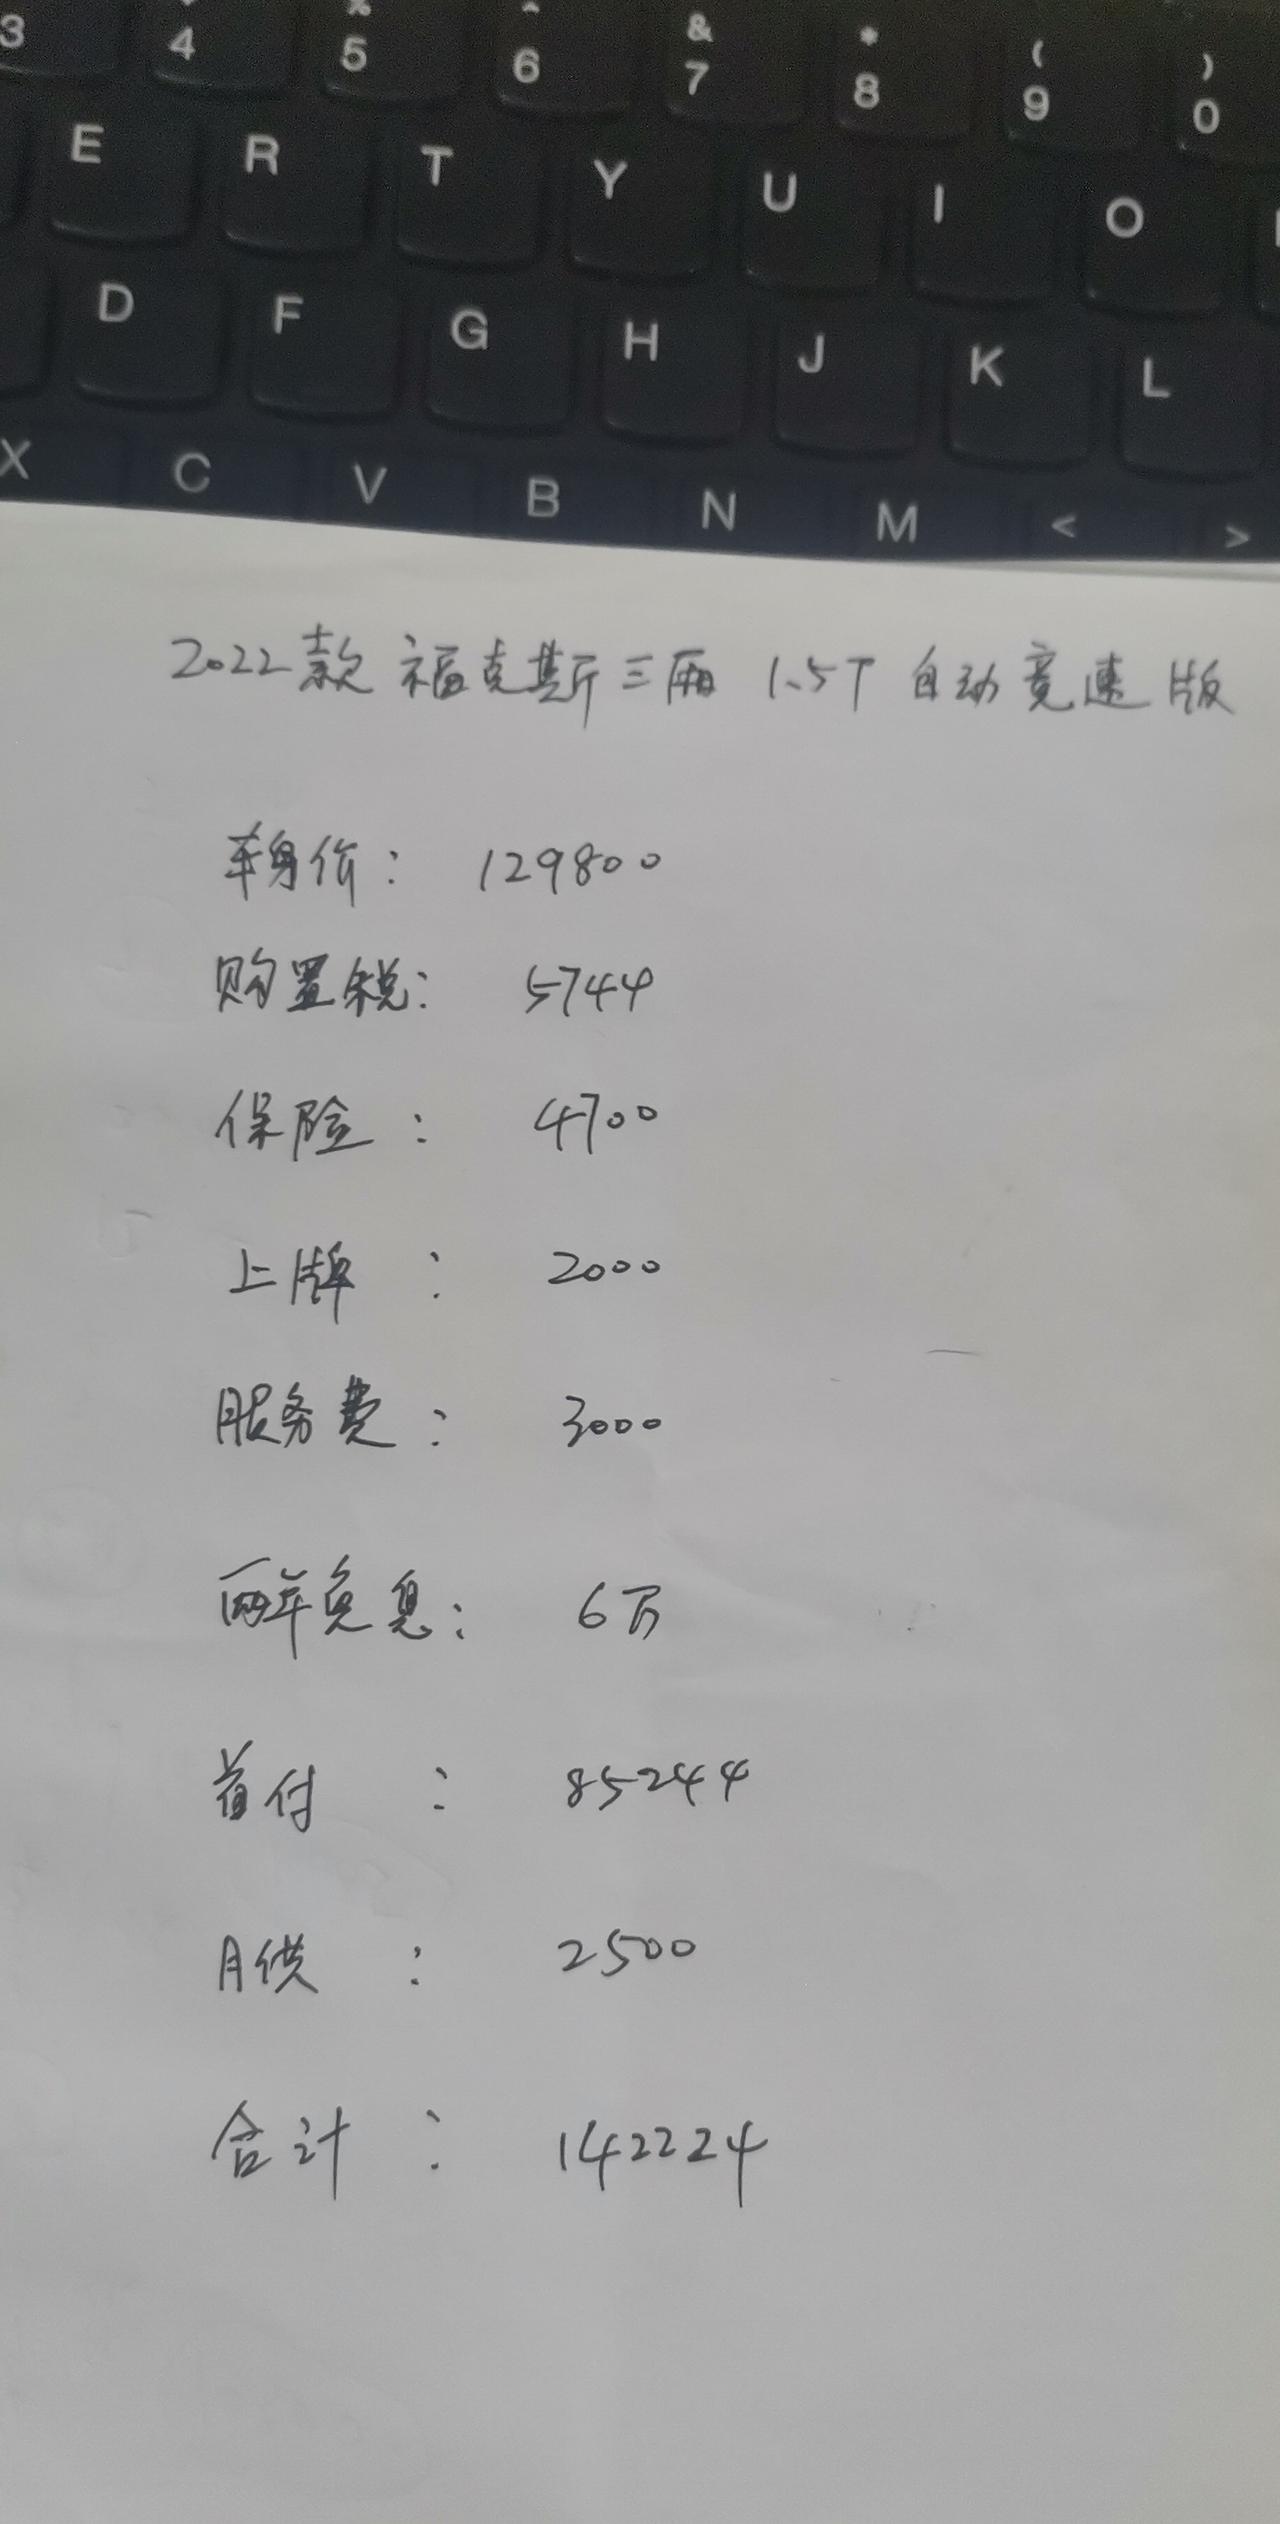 3 4 % 5 ^ 6 & 7 * 8 ( 9 ) 0
E R T Y U I O
D F G H J K L
X C V B N M < >
2022款 福克斯三厢 1.5T 自动竞速版
车身价： 129800
购置税： 5744
保险 ： 4700
上牌 ： 2000
服务费： 3000
两年免息： 6万
首付 ： 85244
月供 ： 2500
合计 ： 142224